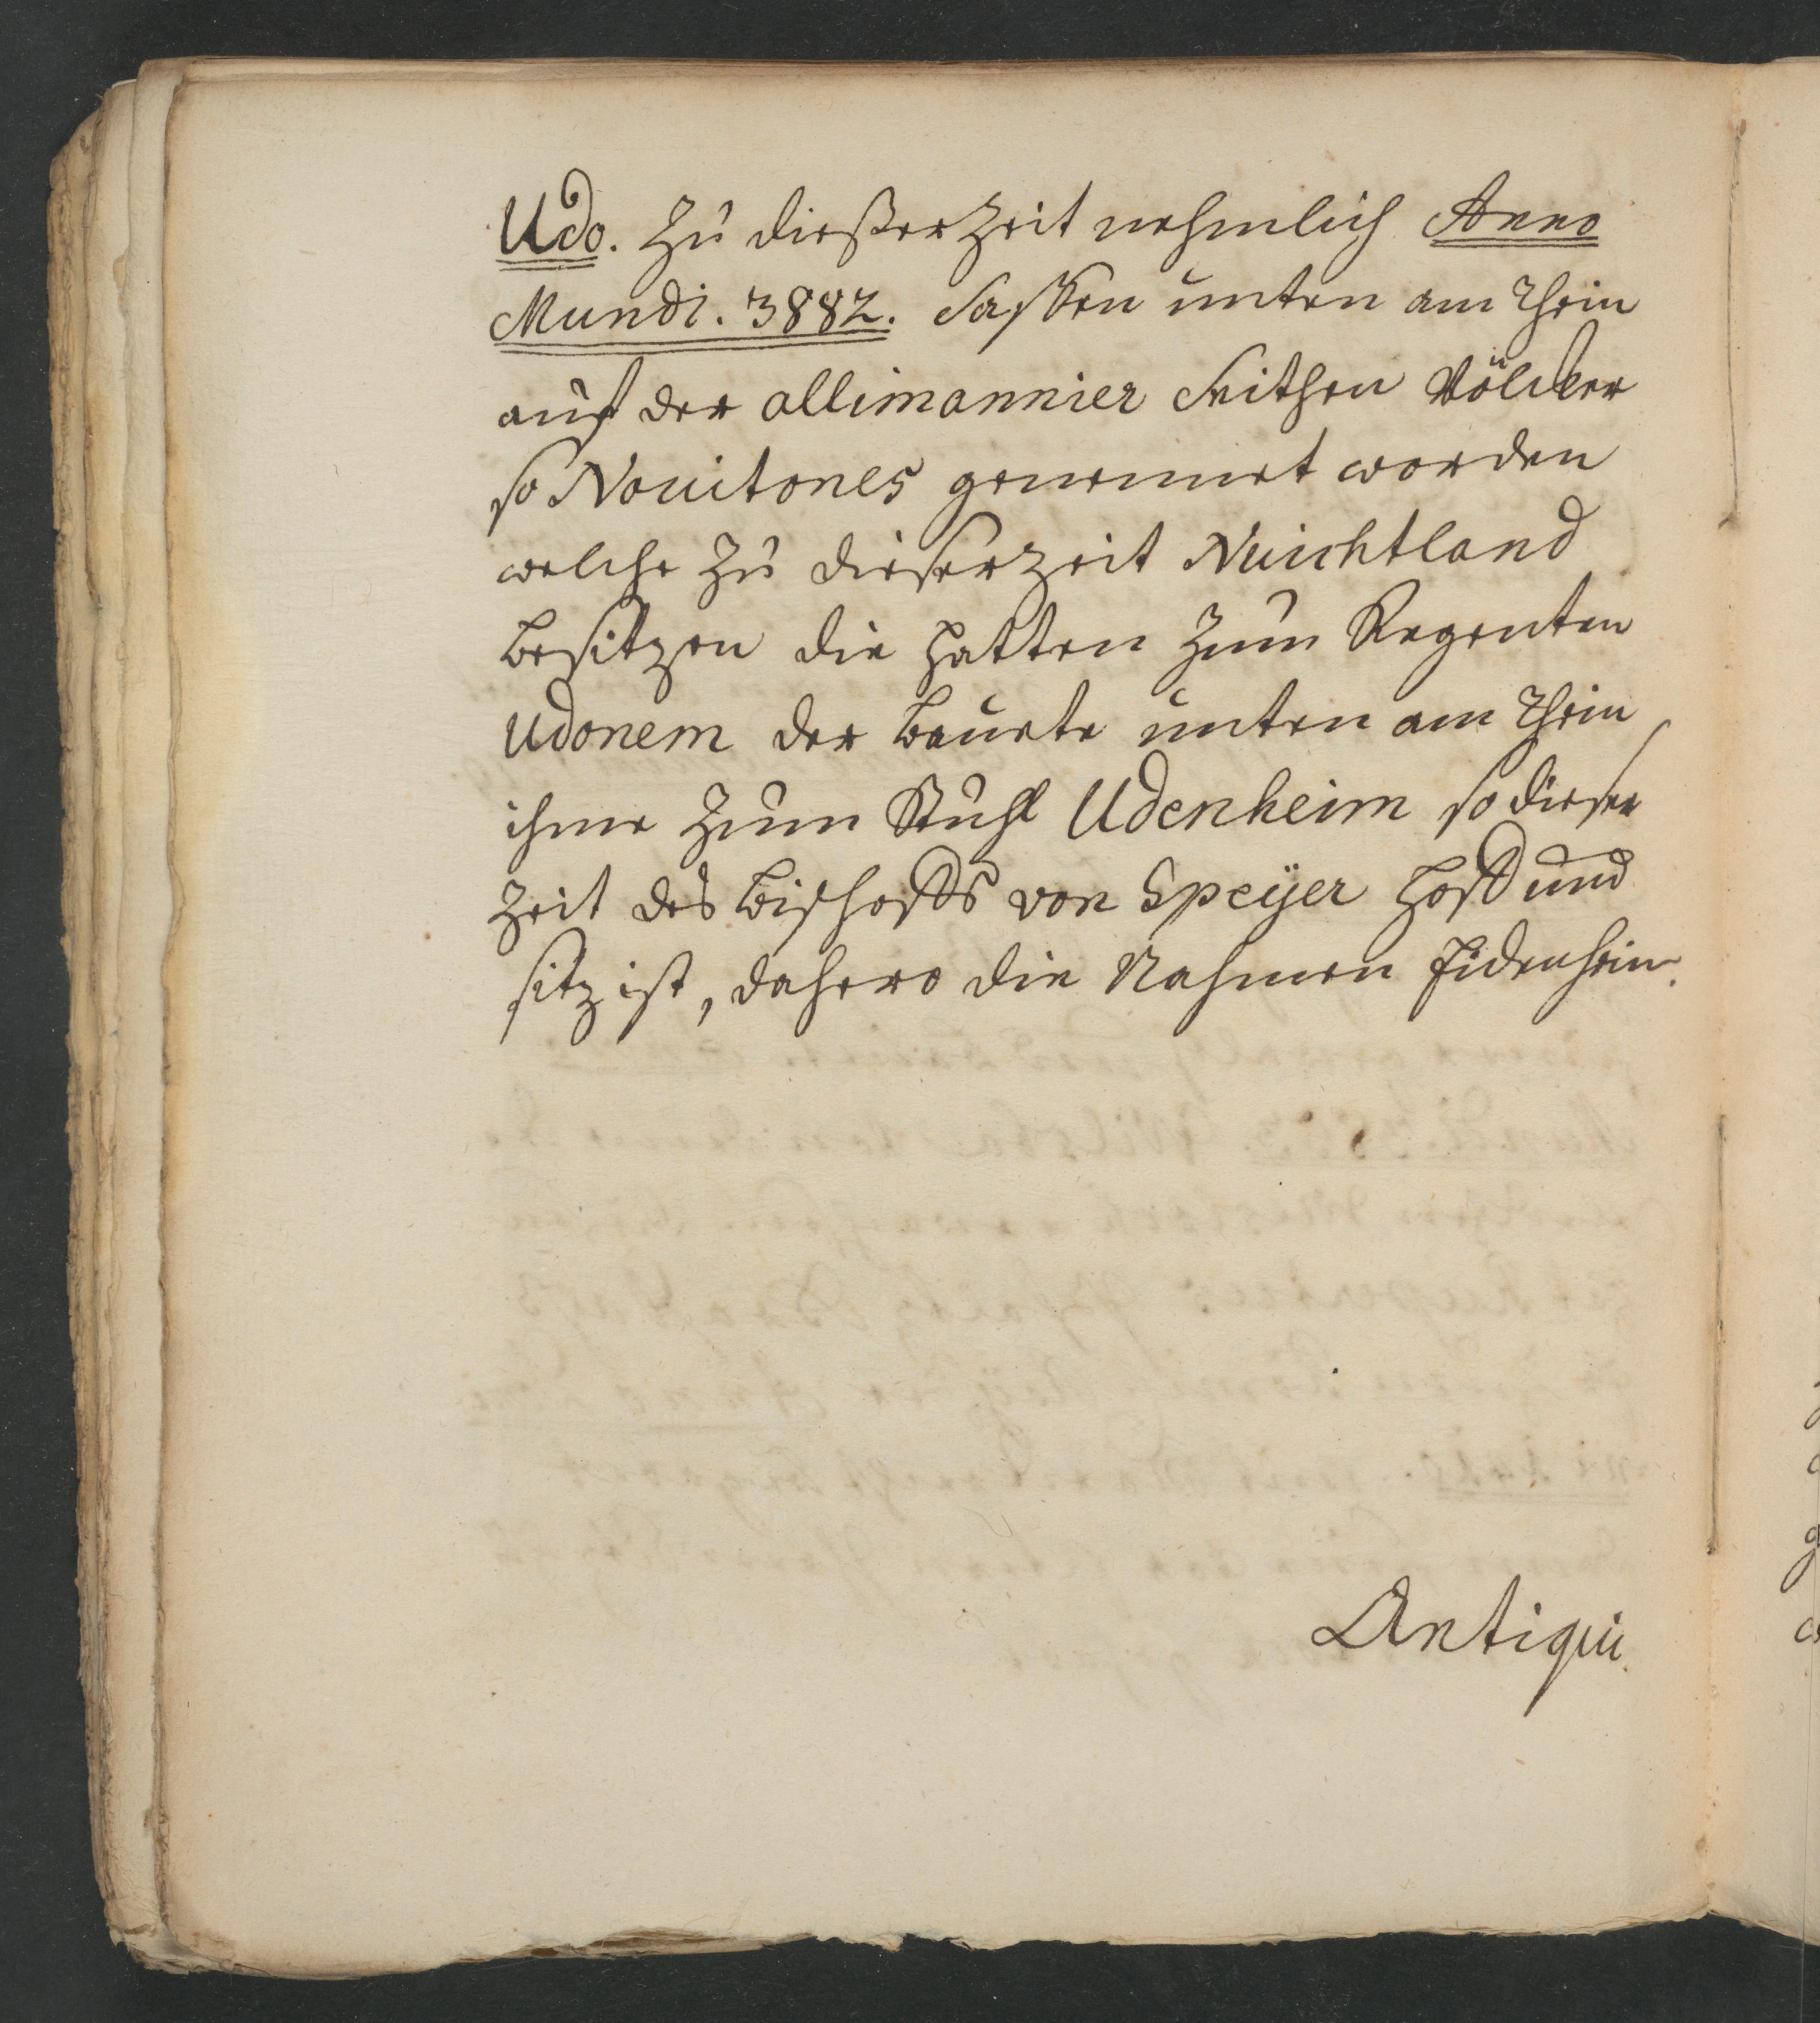 Udo. Zu dießer Zeit nehmlich Anno
Mundi. 3882. Saßen unten am Rhein
auf der allimannier Seithen Völcker
so Nouitones genennet worden
welche zu dieser Zeit Nuichtland
besitzen die hatten zum Regenten
Udonem der bauete unten am Rhein
ihme zum Stuhl Udenheim so dieser
Zeit des Bischoffs von Speÿer Hoff und
sitz ist, dahero die Nahmen
Antiqui